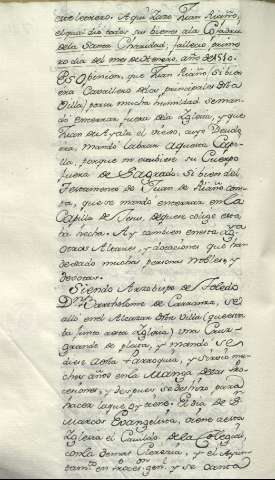 este letrero. Aquí Yaze Juan Riaño,
el qual dio todos sus bienes ala Cofadria
dela Santa Charidad, fallecio primero
ro dia del mes de Henero, año de 1510.
Es Opinion, que Juan Riaño, si bien
era Cavallero delos principales dela
Villa, por su mucha humildad se man
dó enterrar fuera dela Yglesia, y que
Juan de Ayala el viejo, cuyo Deudo
era, mandó labrar aquesta Capi
lla, porque no estubiese su Cuerpo
fuera de Sagrado. Si bien del
Testamento de Juan de Riaño cons
ta, que se mandó enterrar en la
Capilla de Jesus, de que se colige estaba
ba hecha. Ay tambien en esta Ygª
otros Altares, y dotaciones que han
dexado muchas personas nobles, y
devotas.
Siendo Arzobispo de Toledo
Dn Bartholome de Carranza, se
alló en el Alcazar desta Villa (que esta
ba junto a esta Yglesia) una Cruz
grande de plata, y mandó se
diese a esta Parroquia, y sirvió mu
chos años en la Manga delas Pro
cesiones, y despues se deshizo para
hacer la que oy tiene. El dia de Sn
Marcos Evangelista, viene a esta
Yglesia el Cavildo dela Colegial,
con la demas Clerecia, y el Ayun
tamto en Procesn genl. y se canta